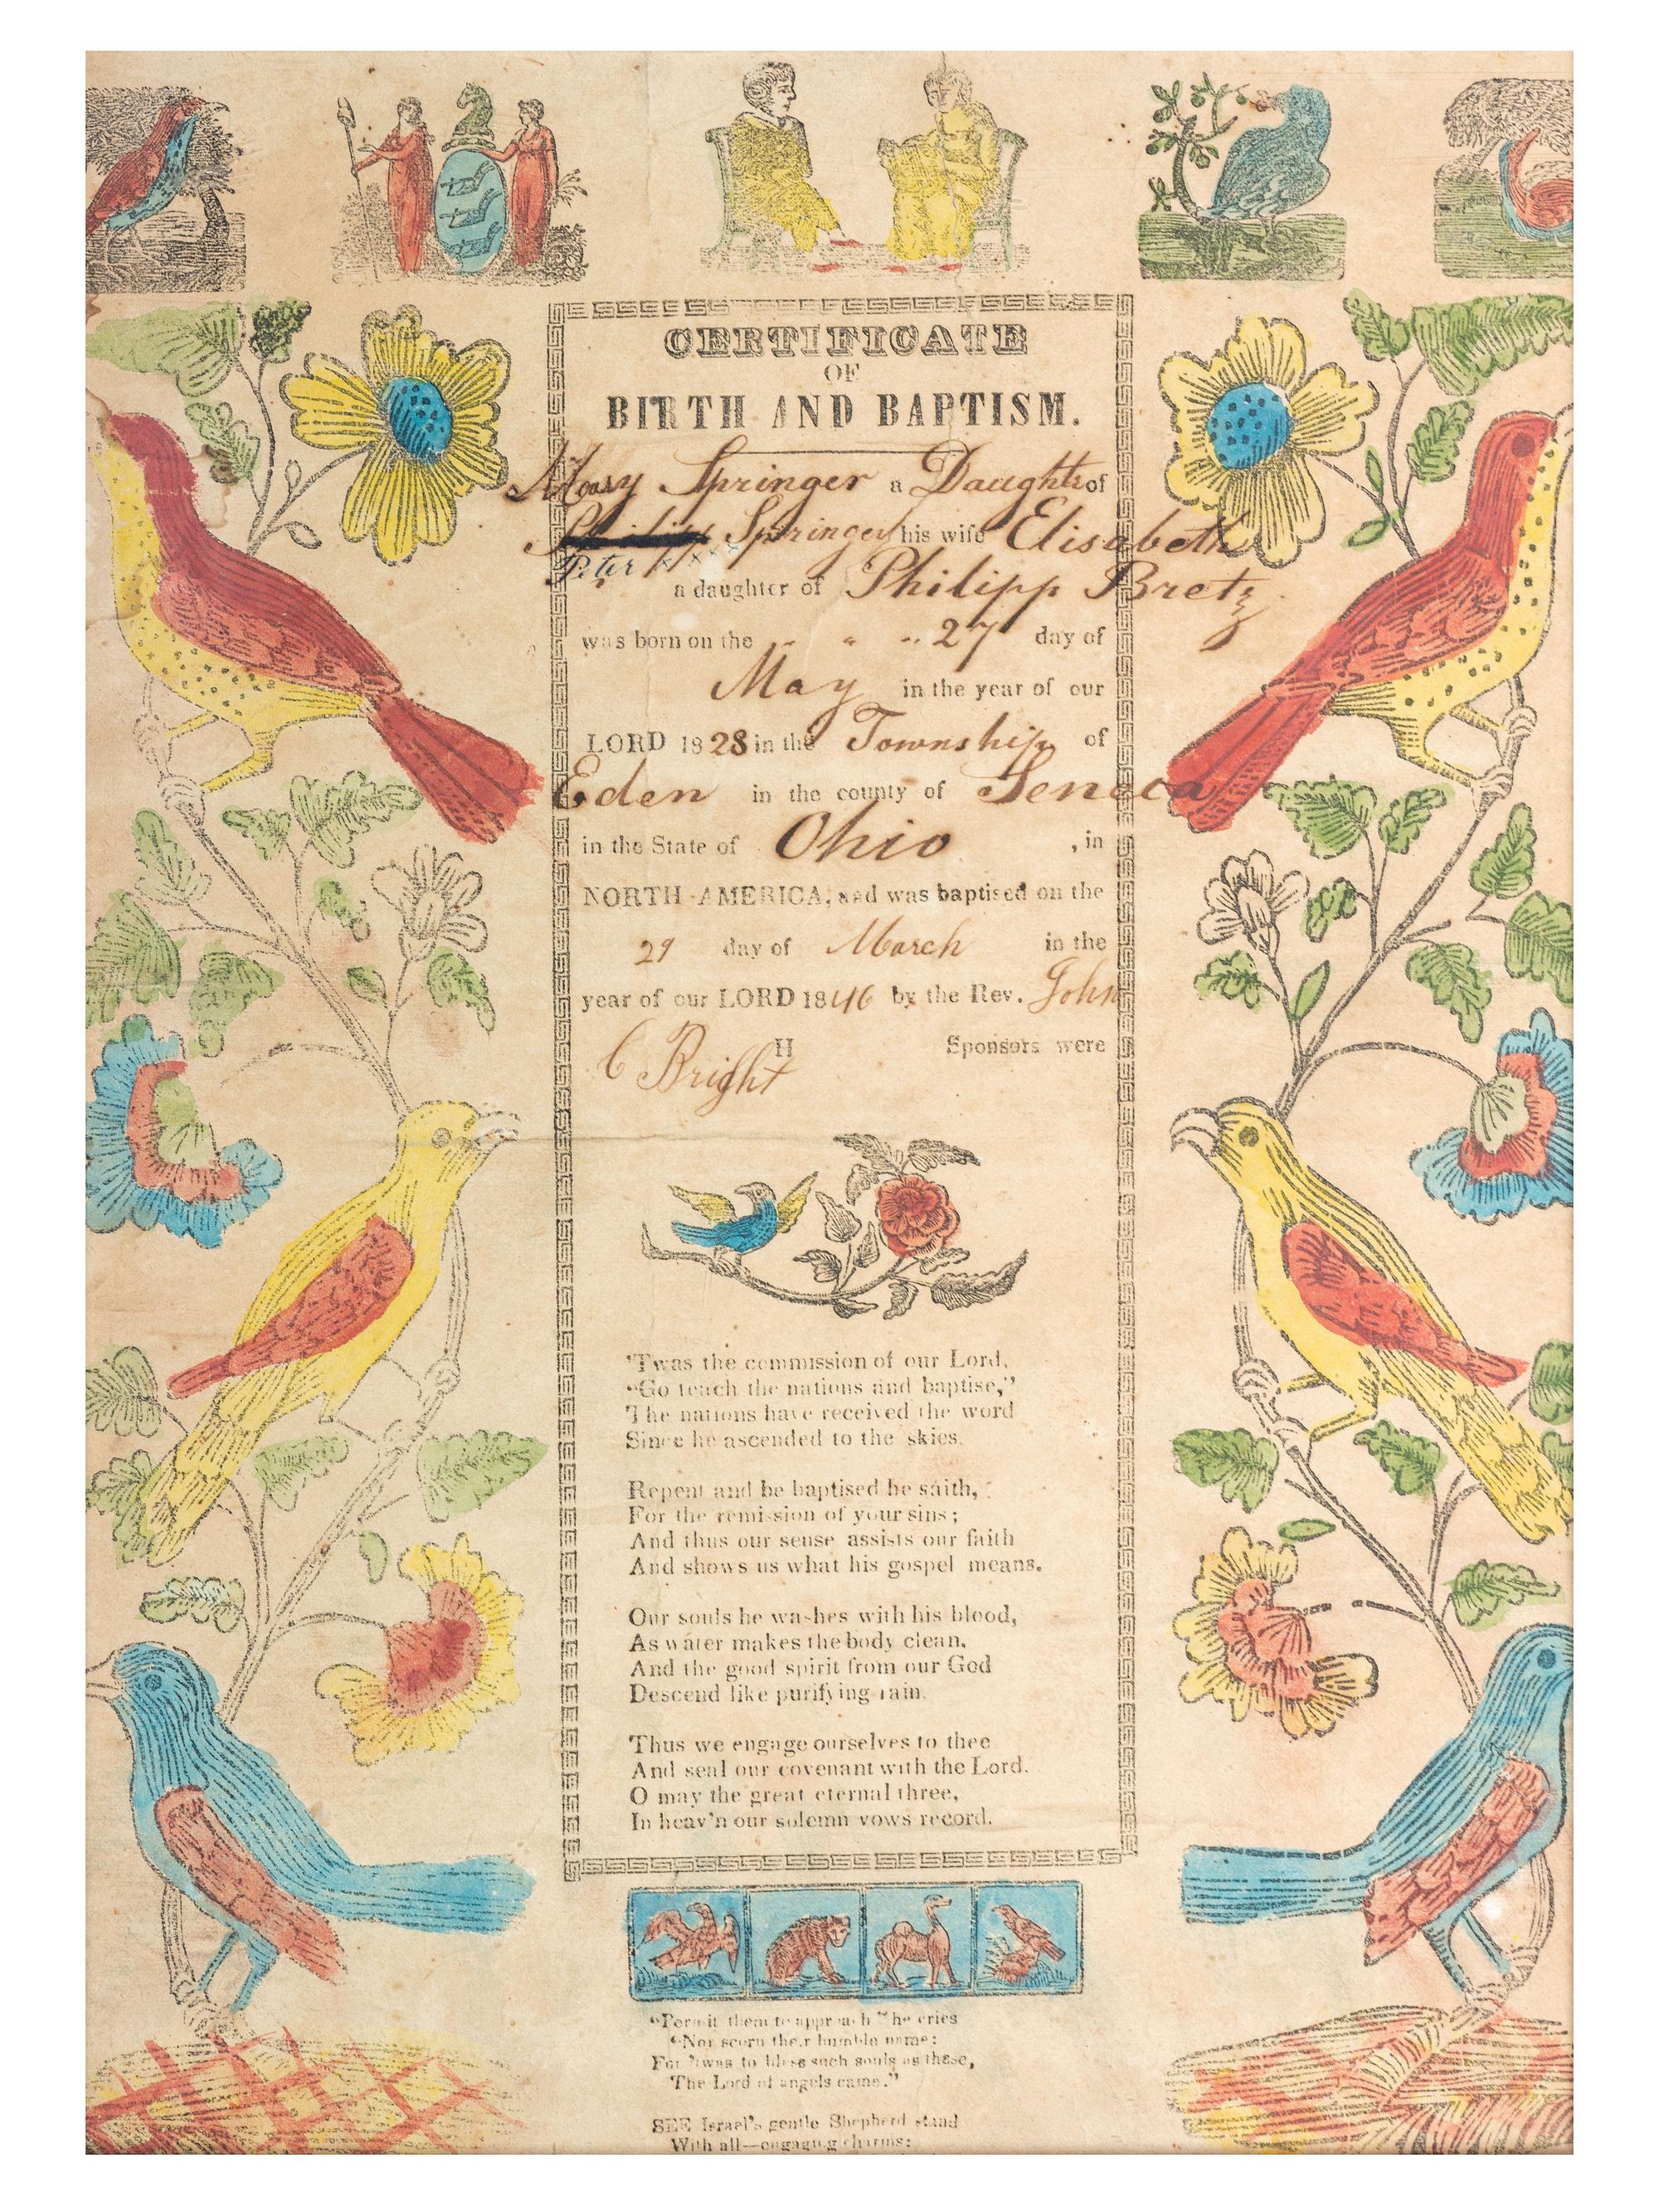 CERTIFICATE
OF
BIRTH AND BAPTISM.
Mary Springer a Daughte of
Philipp Springer his wife Elisabeth
Peter xxx
a daughter of Philipp Bretz
was born on the 27 day of
May in the year of our
LORD 1828 in the Township of
Eden in the county of Seneca
in the State of Ohio , in
NORTH-AMERICA, and was baptised on the
29 day of March in the
year of our LORD 1846 by the Rev. John
C Bright H Sponsors were
'Twas the commission of our Lord,
"Go teach the nations and baptise,"
The nations have received the word
Since he ascended to the skies.
Repent and be baptised he saith,
For the remission of your sins;
And thus our sense assists our faith
And shows us what his gospel means.
Our souls he washes with his blood,
As water makes the body clean.
And the good spirit from our God
Descend like purifying rain.
Thus we engage ourselves to thee
And seal our covenant with the Lord.
O may the great eternal three,
In heav'n our solemn vows record.
"Permit them to approach" he cries
"Nor scorn their humble name:
For 'twas to bless such souls as these,
The Lord of angels came."
SEE Israel's gentle Shepherd stand
With all—engaging charms: